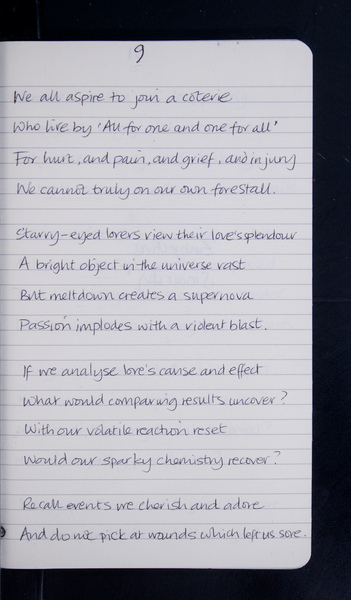 9
We all aspire to join a coterie
Who live by 'All for one and one for all'
For hurt, and pain, and grief, and injury
We cannot truly on our own forestall.
Starry-eyed lovers view their love's splendour
A bright object in the universe vast
But meltdown creates a supernova
Passion implodes with a violent blast.
If we analyse love's cause and effect
What would comparing results uncover?
With our volatile reaction reset
Would our sparky chemistry recover?
Recall events we cherish and adore
And do not pick at wounds which left us sore.